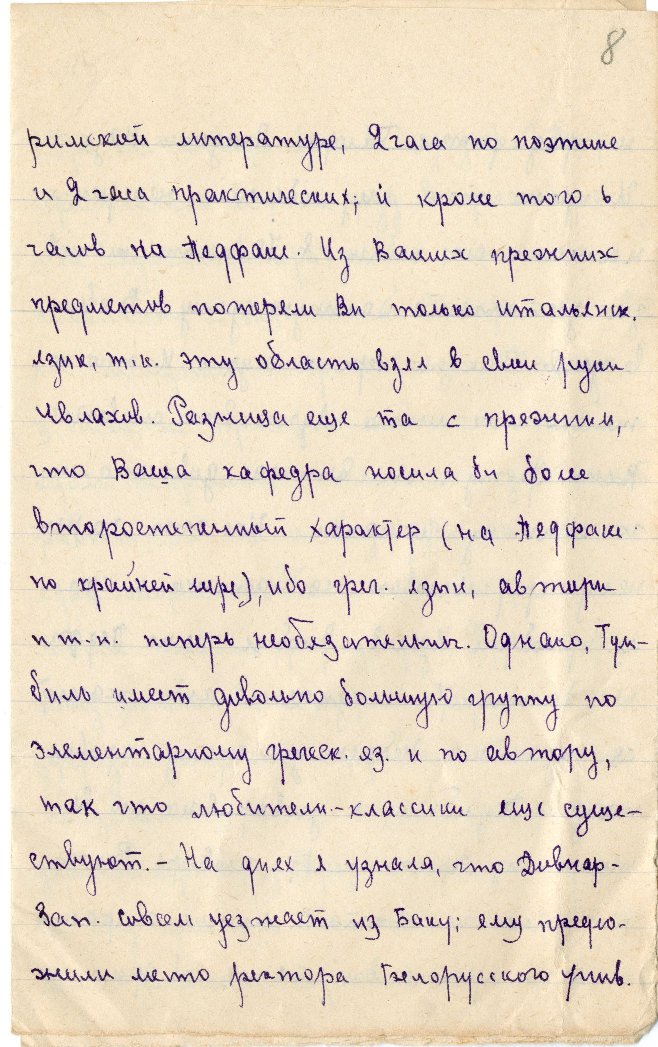 8
римской литературе, 2 часа по поэтике
и 2 часа практических; и кроме того 6
часов на Педфаке. Из Ваших прежних
предметов потеряли Вы только итальянск.
язык, т.к. эту область взял в свои руки
Ивлахов. Разница еще та с прежним,
что Ваша кафедра носила бы более
второстепенный характер (на Педфаке
по крайней мере), ибо греч. язык, авторы
и т.п. теперь необязательны. Однако, Тум-
биль имеет довольно большую группу по
элементарному греческ. яз. и по автору,
так что любители-классики еще суще-
ствуют. – На днях я узнала, что Довнар-
Зап. совсем уезжает из Баку; ему предло-
жили место ректора Белорусского унив.